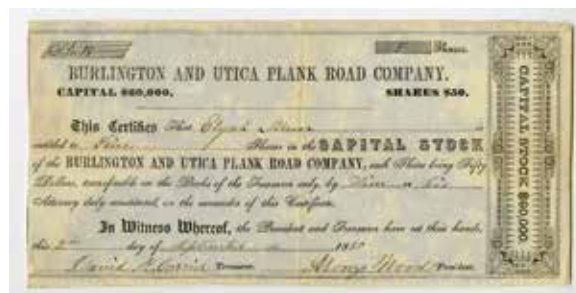 Shares.
BURLINGTON AND UTICA PLANK ROAD COMPANY.
CAPITAL $60,000. SHARES $50.
This Certifies That Elijah is
entitled to Shares in the CAPITAL STOCK
of the BURLINGTON AND UTICA PLANK ROAD COMPANY, each Share being Fifty
Dollars, transferable on the Books of the Treasurer only by him or his
Attorney duly on the of this Certificate.
In Witness Whereof, the President and Treasurer have set their hands,
this 2nd day of September 18
David Treasurer. Alonzo Wood President.
CAPITAL STOCK $60,000.